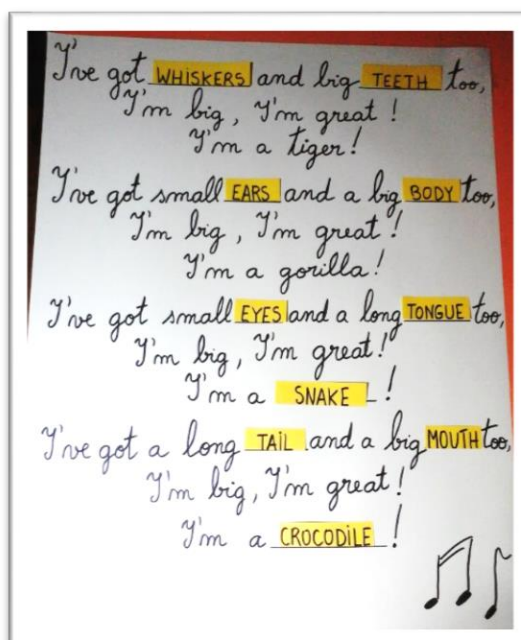 I've got WHISKERS and big TEETH too,
I'm big, I'm great !
I'm a tiger!
I've got small EARS and a big BODY too,
I'm big, I'm great !
I'm a gorilla!
I've got small EYES and a long TONGUE too,
I'm big, I'm great!
I'm a SNAKE !
I've got a long TAIL and a big MOUTH too,
I'm big, I'm great!
I'm a CROCODILE !